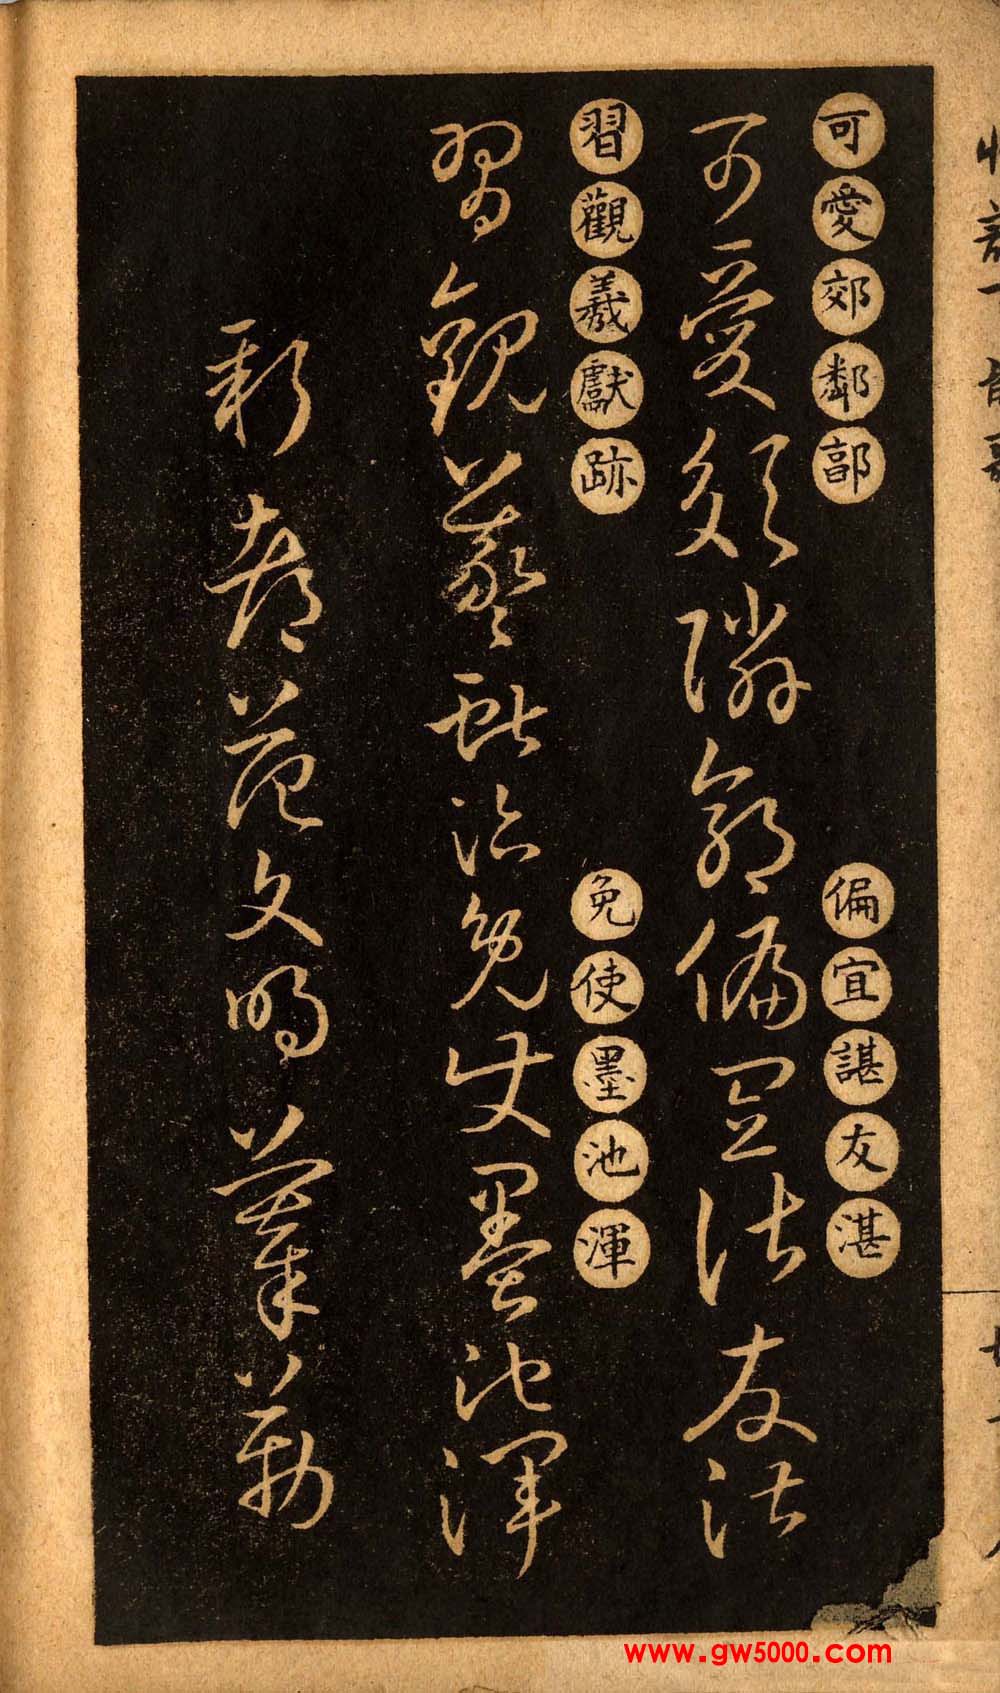 可愛郊鄰郭
偏宜諶友湛
可愛郊鄰郭偏宜諶友湛
習觀羲獻跡
免使墨池渾
習觀羲獻跡免使墨池渾
新都范文明摹勒
www.gw5000.com